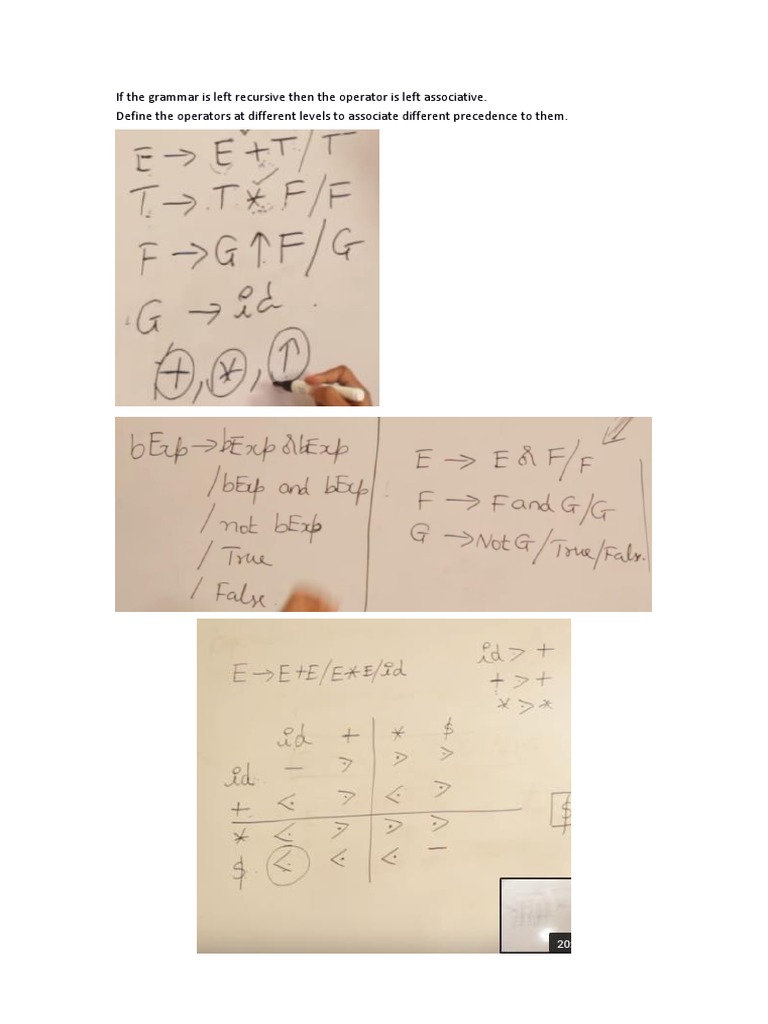 If the grammar is left recursive then the operator is left associative.
Define the operators at different levels to associate different precedence to them.
E → E + T / T
T → T * F / F
F → G ↑ F / G
G → id .
+ , * , ↑
bExp → bExp or bExp
/ bExp and bExp
/ not bExp
/ True
/ False
E → E or F / F
F → F and G / G
G → Not G / True / False.
E → E+E / E*E / id
id ⋗ +
+ ⋗ +
* ⋗ *
id + * $
id – ⋗ ⋗ ⋗
+ ⋖ ⋗ ⋖ ⋗
* ⋖ ⋗ ⋗ ⋗
$ ⋖ ⋖ ⋖ –
$
20: